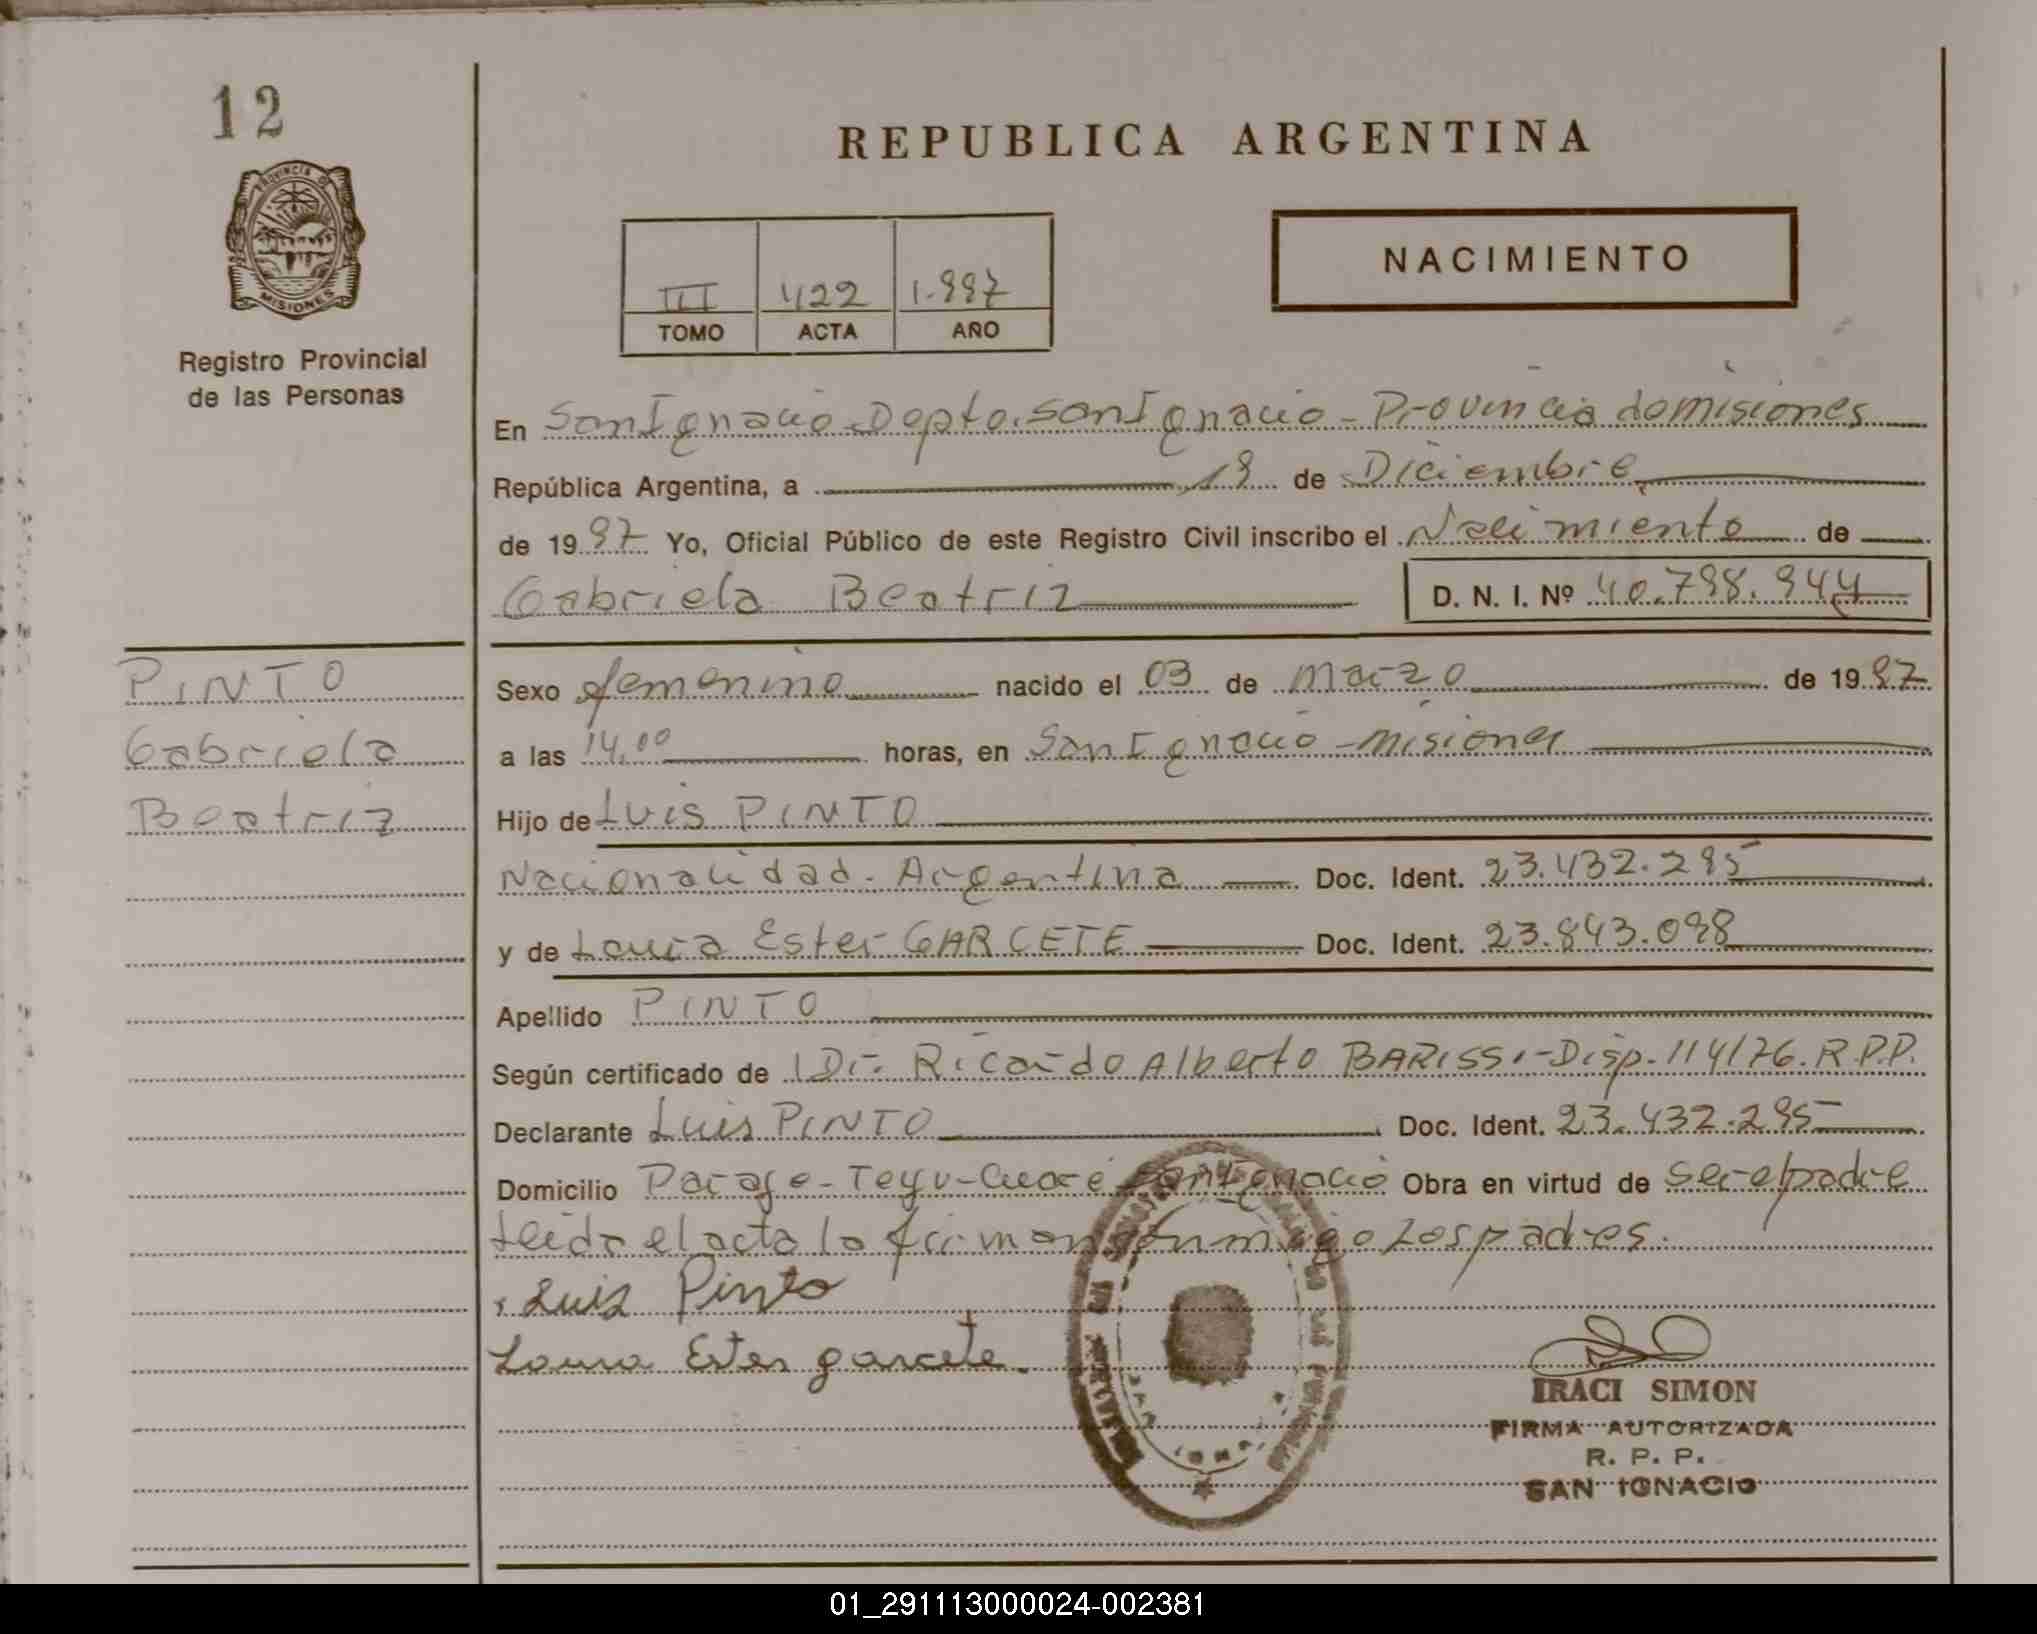 12
PROVINCIA DE
MISIONES
Registro Provincial
de las Personas
REPUBLICA ARGENTINA
NACIMIENTO
III 422 1.997
TOMO ACTA AÑO
En San Ignacio-Depto. San Ignacio-Provincia de misiones
República Argentina, a 19 de Diciembre
de 1997 Yo, Oficial Público de este Registro Civil inscribo el Nacimiento de
Gabriela Beatriz D. N. I. Nº 40.798.944
PINTO
Gabriela
Beatriz
Sexo femenino nacido el 03 de Marzo de 1997
a las 14,00 horas, en San Ignacio-Misiones
Hijo de Luis PINTO
Nacionalidad. Argentina Doc. Ident. 23.432.295
y de Laura Ester GARCETE Doc. Ident. 23.843.098
Apellido PINTO
Según certificado de Dr. Ricardo Alberto BARISSI-Disp. 114/76. R.P.P.
Declarante Luis PINTO Doc. Ident. 23.432.295
Domicilio Paraje-Teyu-Cuare San Ignacio Obra en virtud de ser el padre
Leida el acta la firman conmigo Los padres.
Luis Pinto
Laura Ester garcete.
IRACI SIMON
FIRMA AUTORIZADA
R. P. P.
SAN IGNACIO
01_291113000024-002381